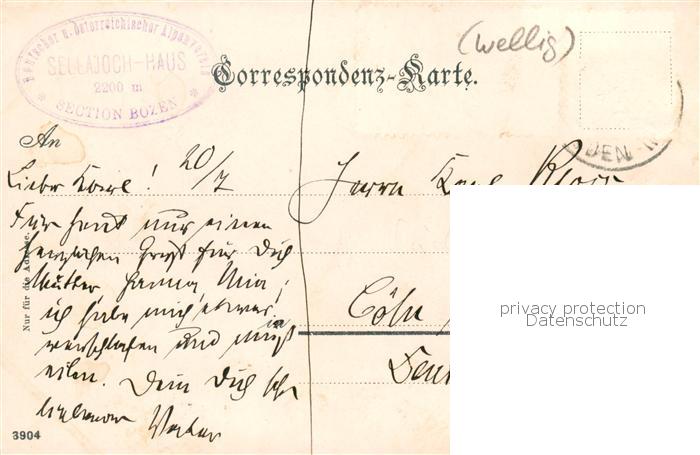 Deutscher u. Österreichischer Alpenverein
SELLAJOCH-HAUS
2200 m
SECTION BOZEN
(wellig)
Correspondenz-Karte.
An
Lieber Karl! 20/7
Für heut nur einen
herzlichen Gruß für Dich
Mutter, Hanna, Mia;
ich habe mich etwas
verschlafen und muß
eilen. Dein Dich sehr
liebender Vater
Nur für die Adresse.
3904
Herrn Karl
Cöln
privacy protection
Datenschutz